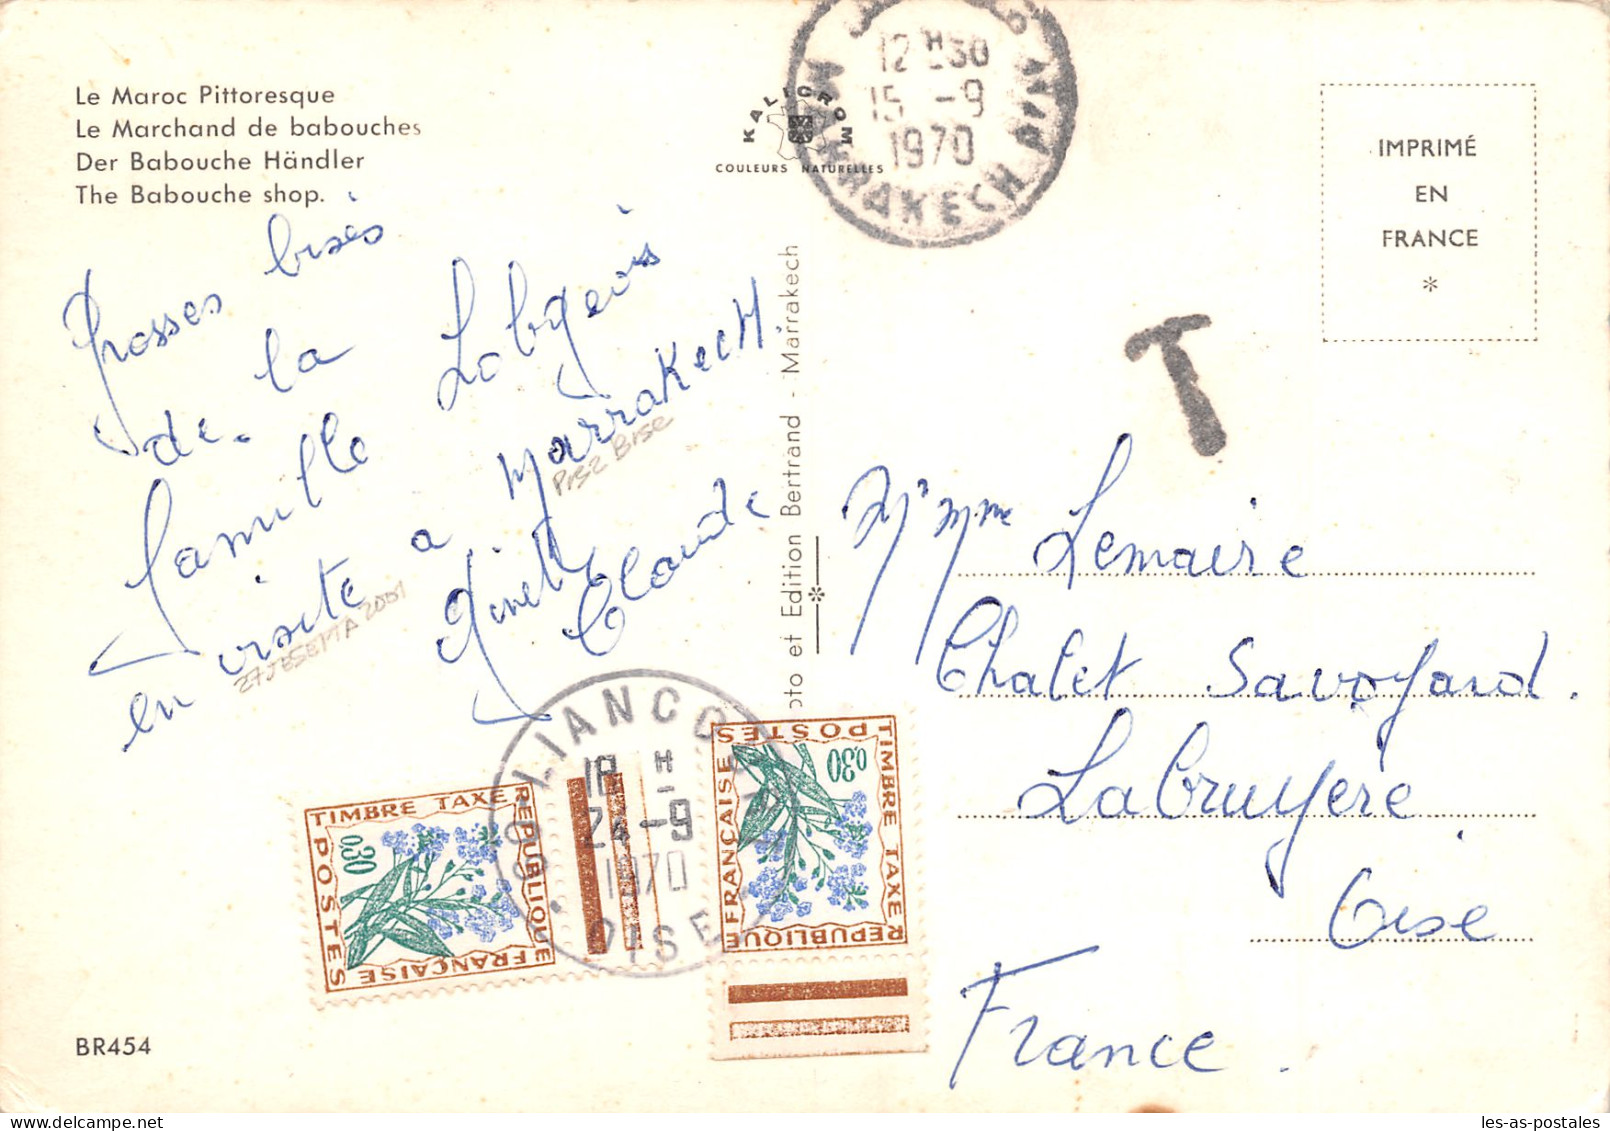 Le Maroc Pittoresque
Le Marchand de babouches
Der Babouche Händler
The Babouche shop.
KALICROM
COULEURS NATURELLES
12H30
15 -9
1970
MARRAKECH
IMPRIMÉ
EN
FRANCE
*
T
Grosses bises
de la
famille Labgeois
en visite a Marrakech
Ginette
Claude
P152 BISE
27JESETTA2001
oto et Edition Bertrand - Marrakech
Mr Mme Lemaire
Chalet Savoyard.
Labruyère
Oise
France.
LIANCOURT
18 H
24-9
1970
OISE
TIMBRE TAXE
POSTES
0,30
REPUBLIQUE
FRANÇAISE
TIMBRE TAXE
POSTES
0,30
REPUBLIQUE
FRANÇAISE
BR454
les-as-postales